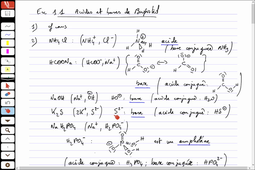 Ex 1.1 Acides et bases de Brønsted
1) f ans
2) NH₄Cl : (NH₄⁺, Cl⁻) acide (base conjuguée NH₃)
HCOONa : (HCOO⁻, Na⁺)
base (acide conjugué
NaOH (Na⁺, OH⁻) HO⁻ : base (acide conjugué : H₂O)
K₂S (2K⁺, S²⁻) S²⁻ : base (acide conjugué : HS⁻)
NaH₂PO₄ (Na⁺, H₂PO₄⁻)
H₂PO₄⁻ : est un ampholyte
(acide conjugué : H₃PO₄ ; base conjuguée : HPO₄²⁻)